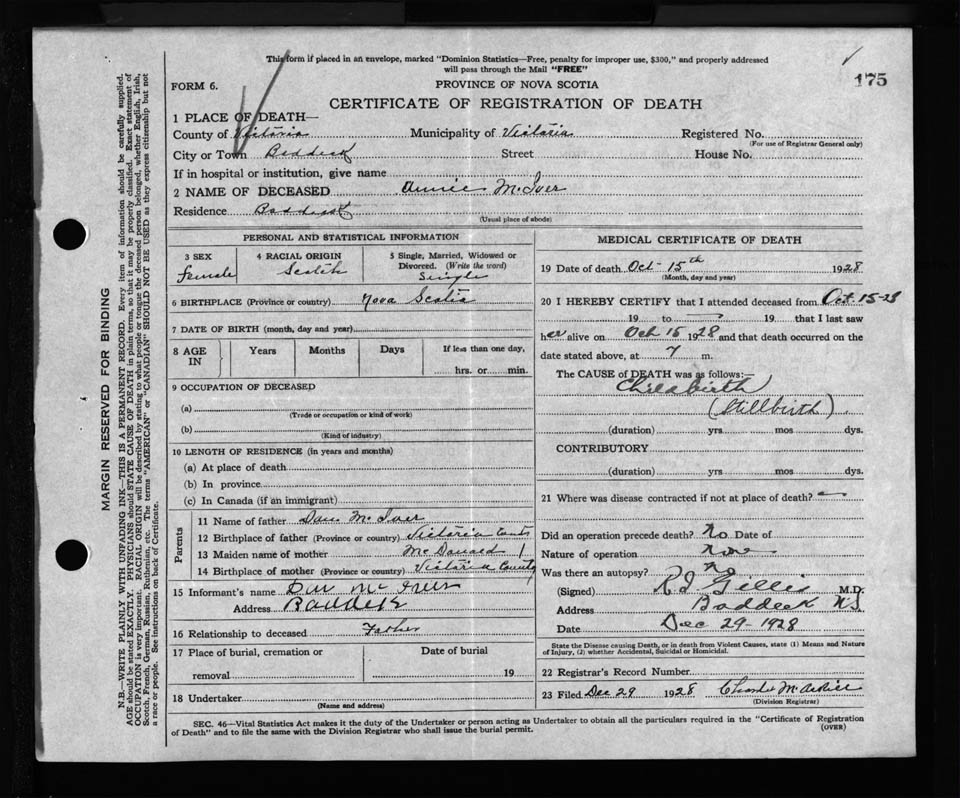 This form if placed in an envelope, marked "Dominion Statistics—Free, penalty for improper use, $300," and properly addressed
will pass through the Mail "FREE"
175
FORM 6.
PROVINCE OF NOVA SCOTIA
CERTIFICATE OF REGISTRATION OF DEATH
1 PLACE OF DEATH—
County of Victoria Municipality of Victoria Registered No.
(For use of Registrar General only)
City or Town Baddeck Street House No.
If in hospital or institution, give name
2 NAME OF DECEASED Annie McIver
Residence Baddeck
(Usual place of abode)
PERSONAL AND STATISTICAL INFORMATION
3 SEX
Female
4 RACIAL ORIGIN
Scotch
5 Single, Married, Widowed or
Divorced. (Write the word)
Single
6 BIRTHPLACE (Province or country) Nova Scotia
7 DATE OF BIRTH (month, day and year)
8 AGE
IN
Years
Months
Days
If less than one day,
hrs. or min.
9 OCCUPATION OF DECEASED
(a)
(Trade or occupation or kind of work)
(b)
(Kind of industry)
10 LENGTH OF RESIDENCE (in years and months)
(a) At place of death
(b) In province
(c) In Canada (if an immigrant)
Parents
11 Name of father Dan McIver
12 Birthplace of father (Province or country) Victoria County
13 Maiden name of mother McDonald
14 Birthplace of mother (Province or country) Victoria County
15 Informant's name Dan McIver
Address Baddeck
16 Relationship to deceased Father
17 Place of burial, cremation or
removal
Date of burial
19
18 Undertaker
(Name and address)
MEDICAL CERTIFICATE OF DEATH
19 Date of death Oct 15th 1928
(Month, day and year)
20 I HEREBY CERTIFY that I attended deceased from Oct. 15-28
19 to 19 that I last saw
her alive on Oct 15 1928 and that death occurred on the
date stated above, at 7 m.
The CAUSE of DEATH was as follows:—
Childbirth
(Stillbirth)
(duration) yrs mos dys.
CONTRIBUTORY
(duration) yrs mos dys.
21 Where was disease contracted if not at place of death?
Did an operation precede death? No Date of
Nature of operation None
Was there an autopsy? No
(Signed) Gillis M.D.
Address Baddeck N.S.
Date Dec 29-1928
State the Disease causing Death, or in death from Violent Causes, state (1) Means and Nature
of Injury, (2) whether Accidental, Suicidal or Homicidal.
22 Registrar's Record Number
23 Filed Dec 29 1928 Charles
(Division Registrar)
SEC. 46—Vital Statistics Act makes it the duty of the Undertaker or person acting as Undertaker to obtain all the particulars required in the "Certificate of Registration
of Death" and to file the same with the Division Registrar who shall issue the burial permit.
(OVER)
MARGIN RESERVED FOR BINDING
N.B.—WRITE PLAINLY WITH UNFADING INK—THIS IS A PERMANENT RECORD. Every item of information should be carefully supplied.
AGE should be stated EXACTLY. PHYSICIANS should STATE CAUSE OF DEATH in plain terms, so that it may be properly classified. Exact statement of
OCCUPATION is very important. RACIAL ORIGIN will be described by stating to what people or tongue the deceased person belonged, whether English, Irish,
Scotch, French, German, Russian, Ruthenian, etc. The terms "AMERICAN" or "CANADIAN" SHOULD NOT BE USED as they express citizenship but not
a race or people. See instructions on back of Certificate.